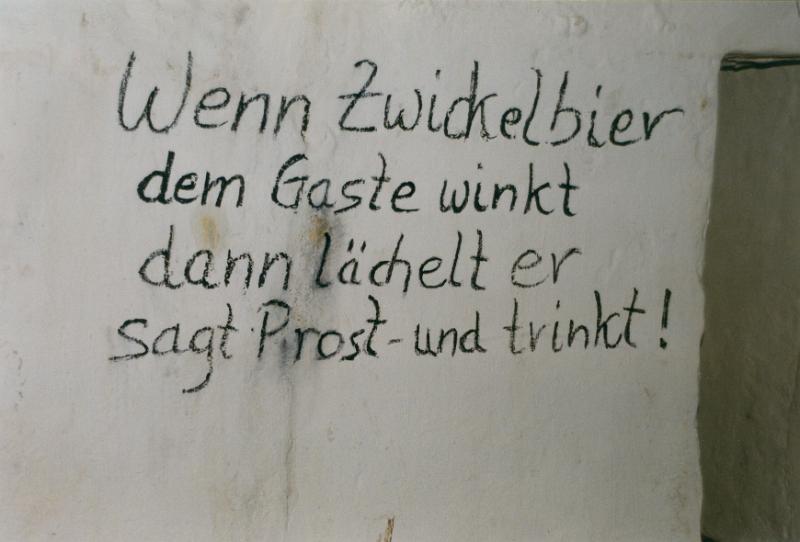 Wenn Zwickelbier
dem Gaste winkt
dann lächelt er
sagt Prost - und trinkt!